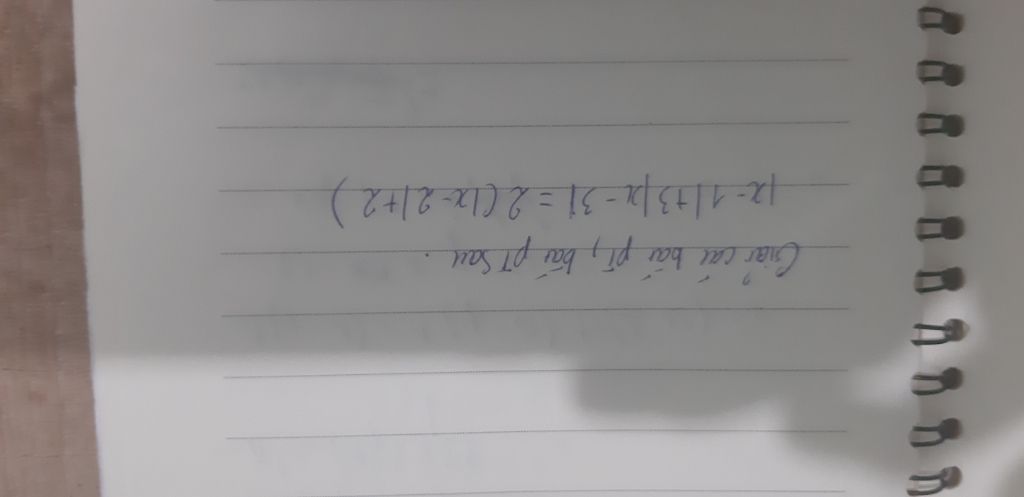 Giải các bất pt, bất pt sau.
|x-1|+3|x-3|=2(|x-2|+2)